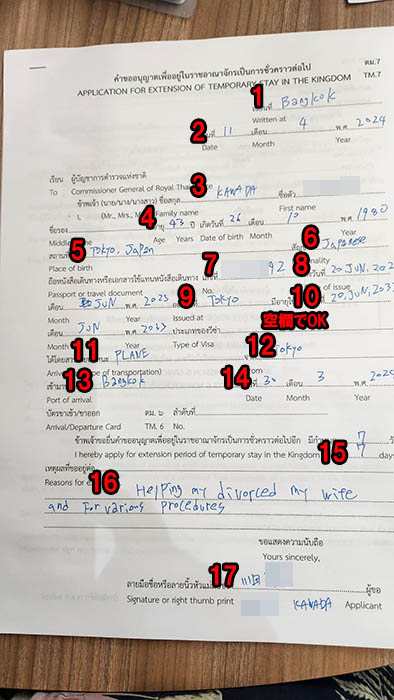 คำขออนุญาตเพื่ออยู่ในราชอาณาจักรเป็นการชั่วคราวต่อไป
ตม.7
APPLICATION FOR EXTENSION OF TEMPORARY STAY IN THE KINGDOM
TM.7
1
Bangkok
Written at
2
11 เดือน 4 พ.ศ. 2024
Date Month Year
เรียน ผู้บัญชาการตำรวจแห่งชาติ
To Commissioner General of Royal Thai
3
ข้าพเจ้า (นาย/นาง/นางสาว) ชื่อสกุล KAWADA ชื่อตัว
I, (Mr., Mrs., Family name First name
4
ชื่อรอง อายุ 43 ปี เกิดวันที่ 26 เดือน 10 พ.ศ. 1980
Age Years Date of birth Month Year
5
Tokyo, Japan
6
Japanese
Place of birth
7
92
8
20 JUN,
ถือหนังสือเดินทางหรือเอกสารใช้แทนหนังสือเดินทาง
Passport or travel document No. of issue
เดือน JUN พ.ศ. 2023
9
Tokyo
10
20, JUN, 2033
Month Year Issued at
空欄でOK
เดือน JUN พ.ศ. 2033 ประเภทของวีซ่า
Month Year Type of Visa
11
PLANE
12
Tokyo
of transportation)
13
Bangkok
14
30 เดือน 3 พ.ศ.
Port of arrival Date Month Year
บัตรขาเข้า/ขาออก ตม. ๖ ลำดับที่
Arrival/Departure Card TM. 6 No.
ข้าพเจ้าขอยื่นคำขออนุญาตเพื่ออยู่ในราชอาณาจักรต่อไปอีก
15
7
I hereby apply for extension period of temporary stay in the Kingdom 7 days
เหตุผลที่ขออยู่ต่อ
Reasons for
16
Helping my divorced my wife
and For various procedures
ขอแสดงความนับถือ
Yours sincerely,
17
ลายมือชื่อหรือลายนิ้วหัวแม่มือ 川田 ผู้ขอ
Signature or right thumb print KAWADA Applicant